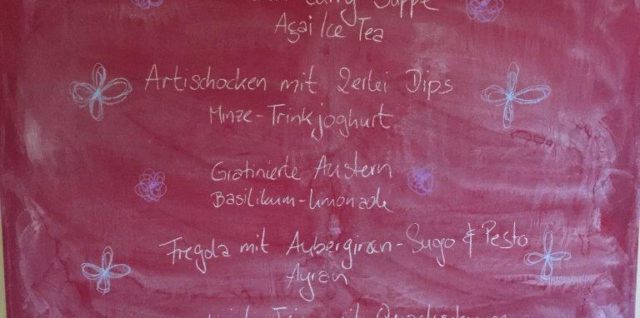 Curry Suppe
Agai Ice Tea
Artischocken mit 2erlei Dips
Minze-Trinkjoghurt
Gratinierte Austern
Basilikum-Limonade
Fregola mit Auberginen-Sugo & Pesto
Ayran